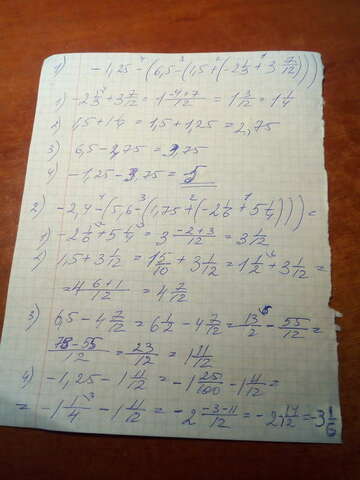 1) -1,25 - (6,5 - (1,5 + (-2 1/3 + 3 7/12)))
1) -2 1/3 + 3 7/12 = 1 -4+7/12 = 1 3/12 = 1 1/4
2) 1,5 + 1 1/4 = 1,5 + 1,25 = 2,75
3) 6,5 - 2,75 = 3,75
4) -1,25 - 3,75 = 5
2) -2,4 - (5,6 - (1,75 + (-2 1/6 + 5 1/4))) =
1) -2 1/6 + 5 1/4 = 3 -2+3/12 = 3 1/12
2) 1,5 + 3 1/12 = 1 5/10 + 3 1/12 = 1 1/2 + 3 1/12 =
= 4 6+1/12 = 4 7/12
3) 6,5 - 4 7/12 = 6 1/2 - 4 7/12 = 13/2 - 55/12 =
78-55/12 = 23/12 = 1 11/12
4) -1,25 - 1 11/12 = -1 25/100 - 1 11/12 =
= -1 1/4 - 1 11/12 = -2 -3-11/12 = -2 14/12 = -3 1/6